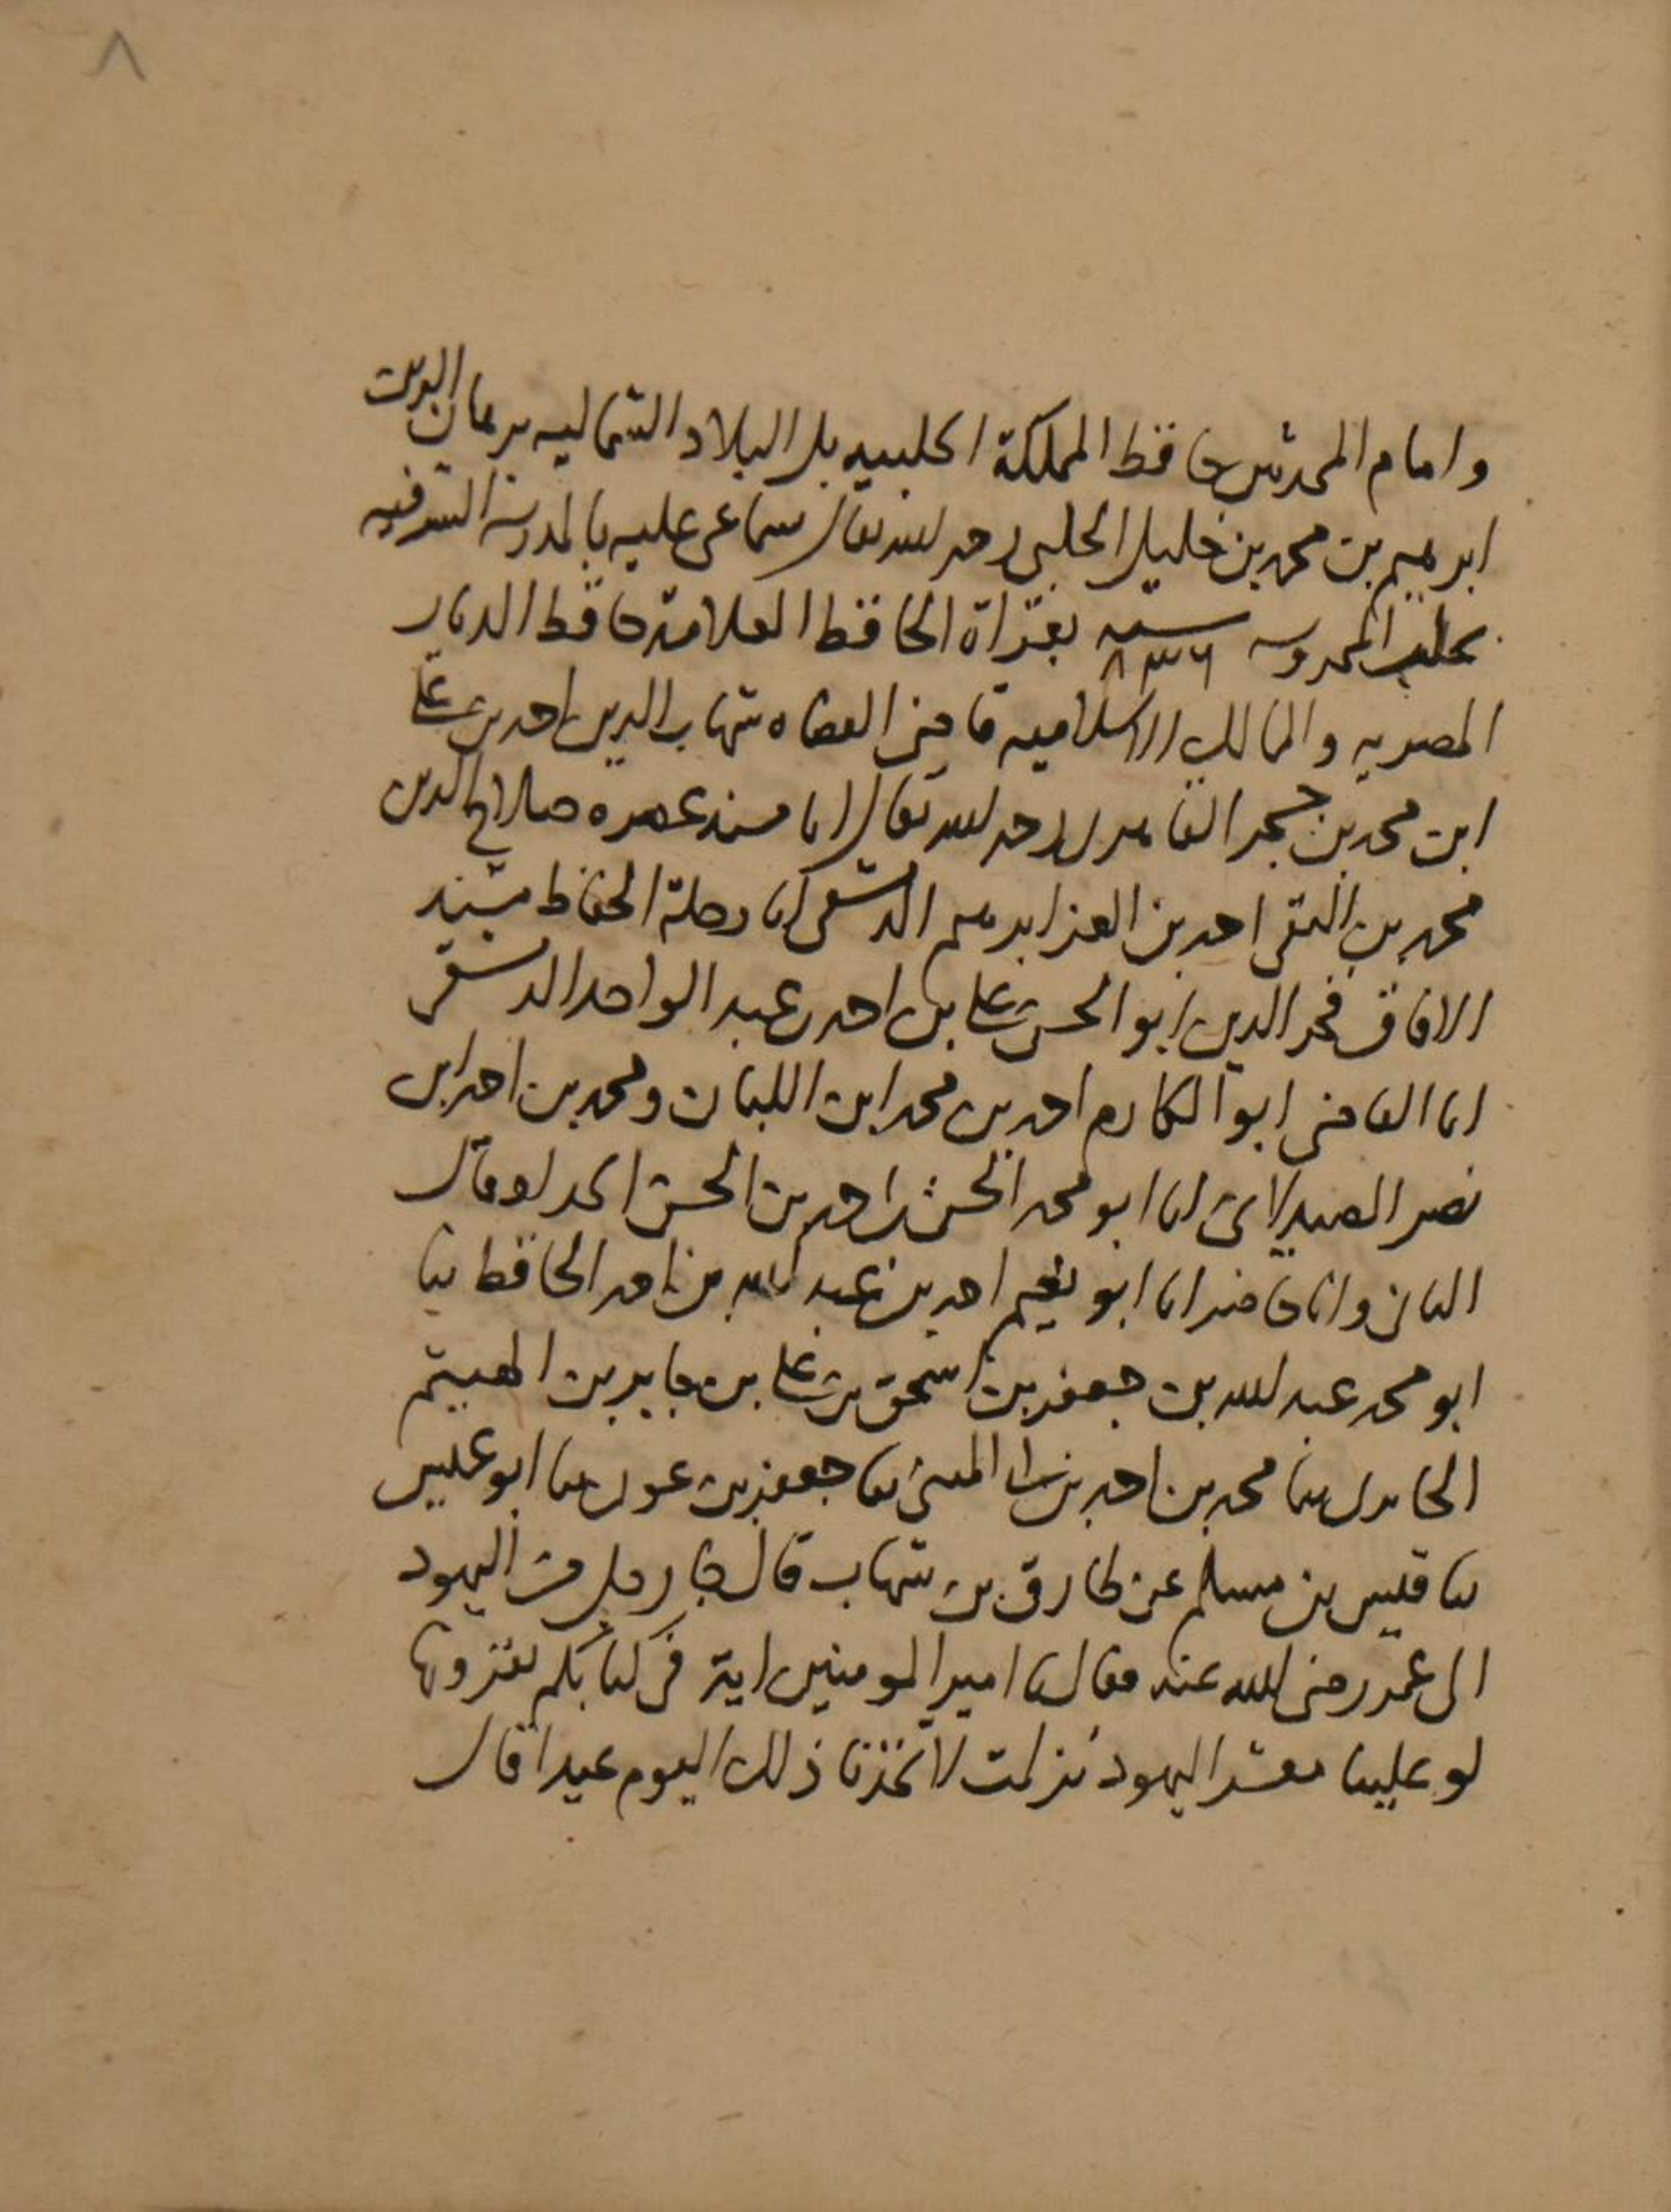 ٨
وامام المحدثين حافظ المملكة الحلبيه بل البلاد الشماليه برهان الدين
ابرهيم بن محمد بن خليل الحلبي رحمه الله تعالى سماعى عليه بالمدرسة الشرفيه
بحلب المحروسه سنه ٨٣٦ بقراة الحافظ العلامة حافظ الديار
المصريه والممالك الاسلاميه قاضى القضاه شهاب الدين احمد بن على
ابن محمد بن حجر القاهرى رحمه الله تعالى انا مسند عصره صلاح الدين
محمد بن التقى احمد بن العز ابرهيم الدمشقى انا رحلة الحفاظ مسند
الافاق فخر الدين ابو الحسن على بن احمد بن عبد الواحد الدمشقى
انا القاضى ابو المكارم احمد بن محمد ابن اللبان ومحمد بن احمد ابن
نصر الصيدلانى انا ابو محمد الحسن بن احمد بن الحسن الحداد قال
الثانى وانا حاضر انا ابو نعيم احمد بن عبد الله بن احمد الحافظ ثنا
ابو محمد عبد الله بن جعفر بن اسحق بن على بن جابر بن الهيثم
الجابرى ثنا محمد بن احمد بن ابى المثنى ثنا جعفر بن عون ثنا ابو عميس
ثنا قيس بن مسلم عن طارق بن شهاب قال جا رجل من اليهود
الى عمر رضى الله عنه فقال يا امير المومنين اية فى كتابكم تقرونها
لو علينا معشر اليهود نزلت لاتخذنا ذلك اليوم عيدا قال